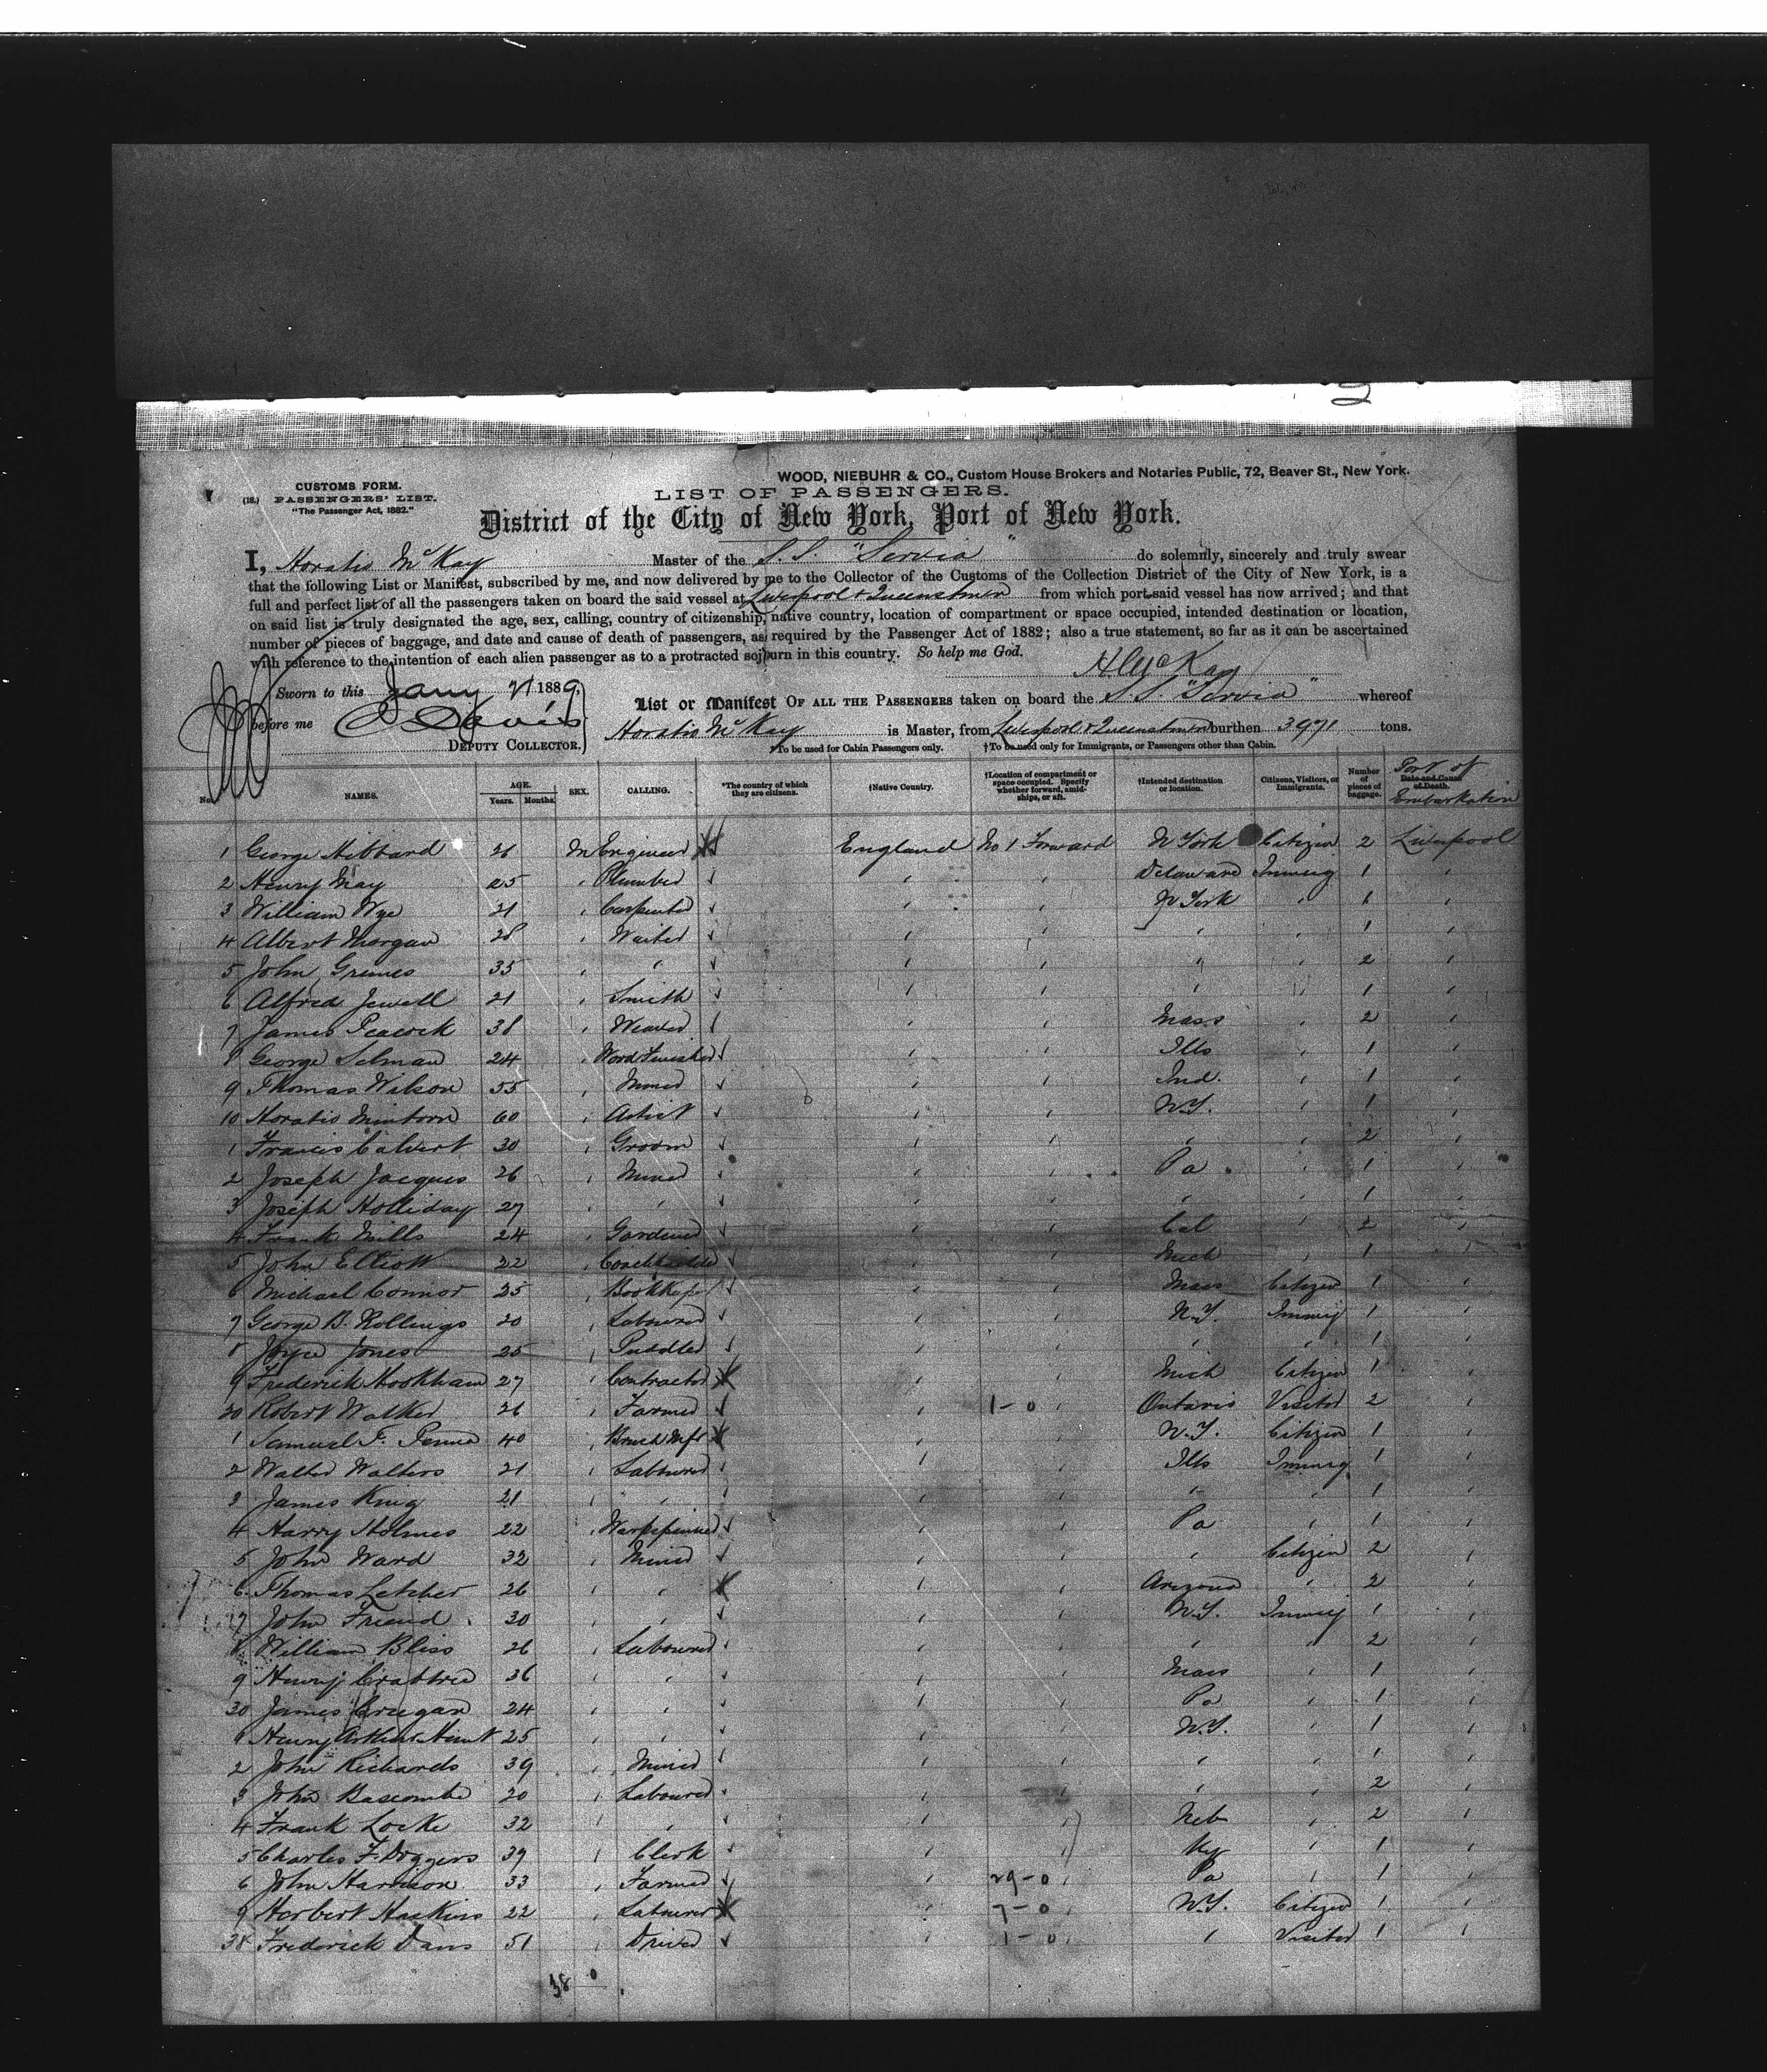 WOOD, NIEBUHR & CO., Custom House Brokers and Notaries Public, 72, Beaver St., New York.
CUSTOMS FORM.
(18.) PASSENGERS' LIST.
"The Passenger Act, 1882."
LIST OF PASSENGERS.
District of the City of New York, Port of New York.
I, Horatio McKay Master of the S.S. "Servia" do solemnly, sincerely and truly swear
that the following List or Manifest, subscribed by me, and now delivered by me to the Collector of the Customs of the Collection District of the City of New York, is a
full and perfect list of all the passengers taken on board the said vessel at Liverpool & Queenstown from which port said vessel has now arrived; and that
on said list is truly designated the age, sex, calling, country of citizenship, native country, location of compartment or space occupied, intended destination or location,
number of pieces of baggage, and date and cause of death of passengers, as required by the Passenger Act of 1882; also a true statement, so far as it can be ascertained
with reference to the intention of each alien passenger as to a protracted sojourn in this country. So help me God.
H McKay
Sworn to this Jany 21 1889,
before me Davis
DEPUTY COLLECTOR.
List or Manifest OF ALL THE PASSENGERS taken on board the S.S. "Servia" whereof
Horatio McKay is Master, from Liverpool & Queenstown burthen 3971 tons.
*To be used for Cabin Passengers only. †To be used only for Immigrants, or Passengers other than Cabin.
No. NAMES. AGE. Years. Months. SEX. CALLING. *The country of which they are citizens. †Native Country. †Location of compartment or space occupied. Specify whether forward, amidships, or aft. †Intended destination or location. Citizens, Visitors, or Immigrants. Number of pieces of baggage. Date and Cause of Death. Port of Embarkation
1 George Hibbard 26 M Engineer England No 1 Forward N York Citizen 2 Liverpool
2 Henry May 25 " Plumber " " Delaware Immig 1 "
3 William Wye 21 " Carpenter " " N York " 1 "
4 Albert Morgan 28 " Waiter " " " " 1 "
5 John Grimes 35 " " " " " " 2 "
6 Alfred Jewell 21 " Smith " " " " 1 "
7 James Peacock 38 " Weaver " " Mass " 2 "
8 George Selman 24 " Wood Turner " " Ills " 1 "
9 Thomas Wilson 55 " Miner " " Ind. " 1 "
10 Horatio Minton 60 " Artist " " N.Y. " 1 "
1 Francis Calvert 30 " Groom " " " " 2 "
2 Joseph Jacques 26 " Miner " " Pa " 1 "
3 Joseph Holliday 27 " " " " " " 1 "
4 Frank Mills 24 " Gardener " " Cal " 2 "
5 John Elliott 22 " Coachbuilder " " Mich " 1 "
6 Michael Connor 25 " Bookkeeper " " Mass Citizen 1 "
7 George B. Rollings 20 " Labourer " " N.Y. Immig 1 "
8 Joyce Jones 25 " Puddler " " " " 1 "
9 Frederick Hookham 27 " Contractor " " Mich Citizen 1 "
20 Robert Walker 26 " Farmer " 1-0 " Ontario Visitor 2 "
1 Samuel F. 40 " Brush Mfr " " N.Y. Citizen 1 "
2 Walter Walters 21 " Labourer " " Ills Immig 1 "
3 James King 21 " " " " " " 1 "
4 Harry Holmes 22 " " " Pa " 1 "
5 John Ward 32 " Miner " " " Citizen 2 "
6 Thomas Letcher 26 " " " " Arizona " 2 "
27 John Friend 30 " " " " N.Y. Immig 1 "
8 William Bliss 26 " Labourer " " " " 2 "
9 Henry Crabtree 36 " " " " Mass " 1 "
30 James Cregan 24 " " " " Pa " 1 "
1 Henry Arthur Hunt 25 " " " " N.Y. " 1 "
2 John Richards 39 " Miner " " " " 1 "
3 John Bascombe 20 " Labourer " " " " 2 "
4 Frank Locke 32 " " " " Neb " 2 "
5 Charles F. Doggers 39 " Clerk " " Ky " 1 "
6 John Harrison 33 " Farmer " 29-0 " Pa " 1 "
7 Herbert Haskins 22 " Labourer " 7-0 " N.Y. Citizen 1 "
38 Frederick Davis 51 " Driver " 1-0 " " Visitor 1 "
38 0